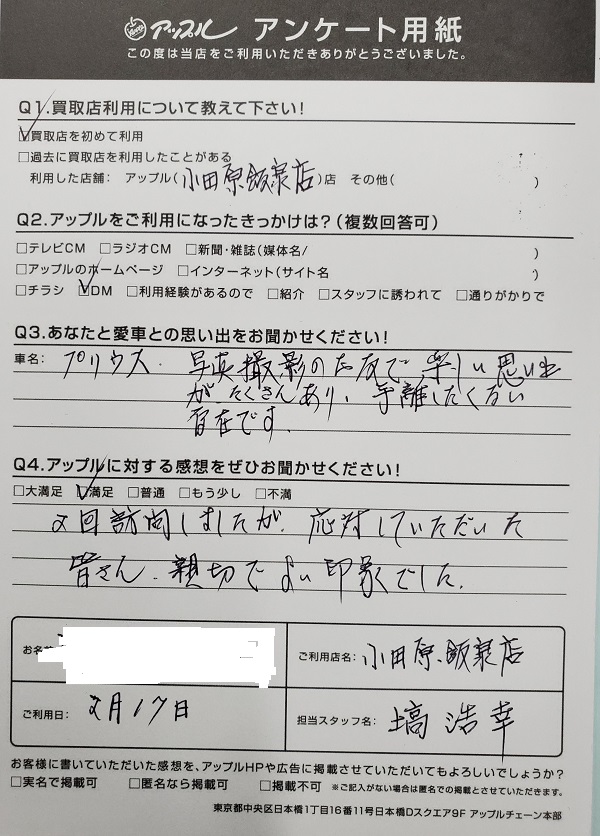 アップル アンケート用紙
この度は当店をご利用いただきありがとうございました。
Q1.買取店利用について教えて下さい!
☑買取店を初めて利用
□過去に買取店を利用したことがある
利用した店舗: アップル(小田原飯泉店)店 その他( )
Q2.アップルをご利用になったきっかけは?(複数回答可)
□テレビCM □ラジオCM □新聞・雑誌(媒体名/ )
□アップルのホームページ □インターネット(サイト名 )
□チラシ ☑DM □利用経験があるので □紹介 □スタッフに誘われて □通りがかりで
Q3.あなたと愛車との思い出をお聞かせください!
車名: プリウス. 写真撮影の友で、楽しい思い出
がたくさんあり、手離したくない
存在です.
Q4.アップルに対する感想をぜひお聞かせください!
□大満足 ☑満足 □普通 □もう少し □不満
2回訪問しましたが、応対していただいた
皆さん、親切でよい印象でした.
お名前
ご利用店名: 小田原.飯泉店
ご利用日: 2月17日
担当スタッフ名: 塙 浩幸
お客様に書いていただいた感想を、アップルHPや広告に掲載させていただいてもよろしいでしょうか?
□実名で掲載可 □匿名なら掲載可 □掲載不可 ※ご記入がない場合は匿名での掲載とさせていただきます。
東京都中央区日本橋1丁目16番11号日本橋Dスクエア9F アップルチェーン本部